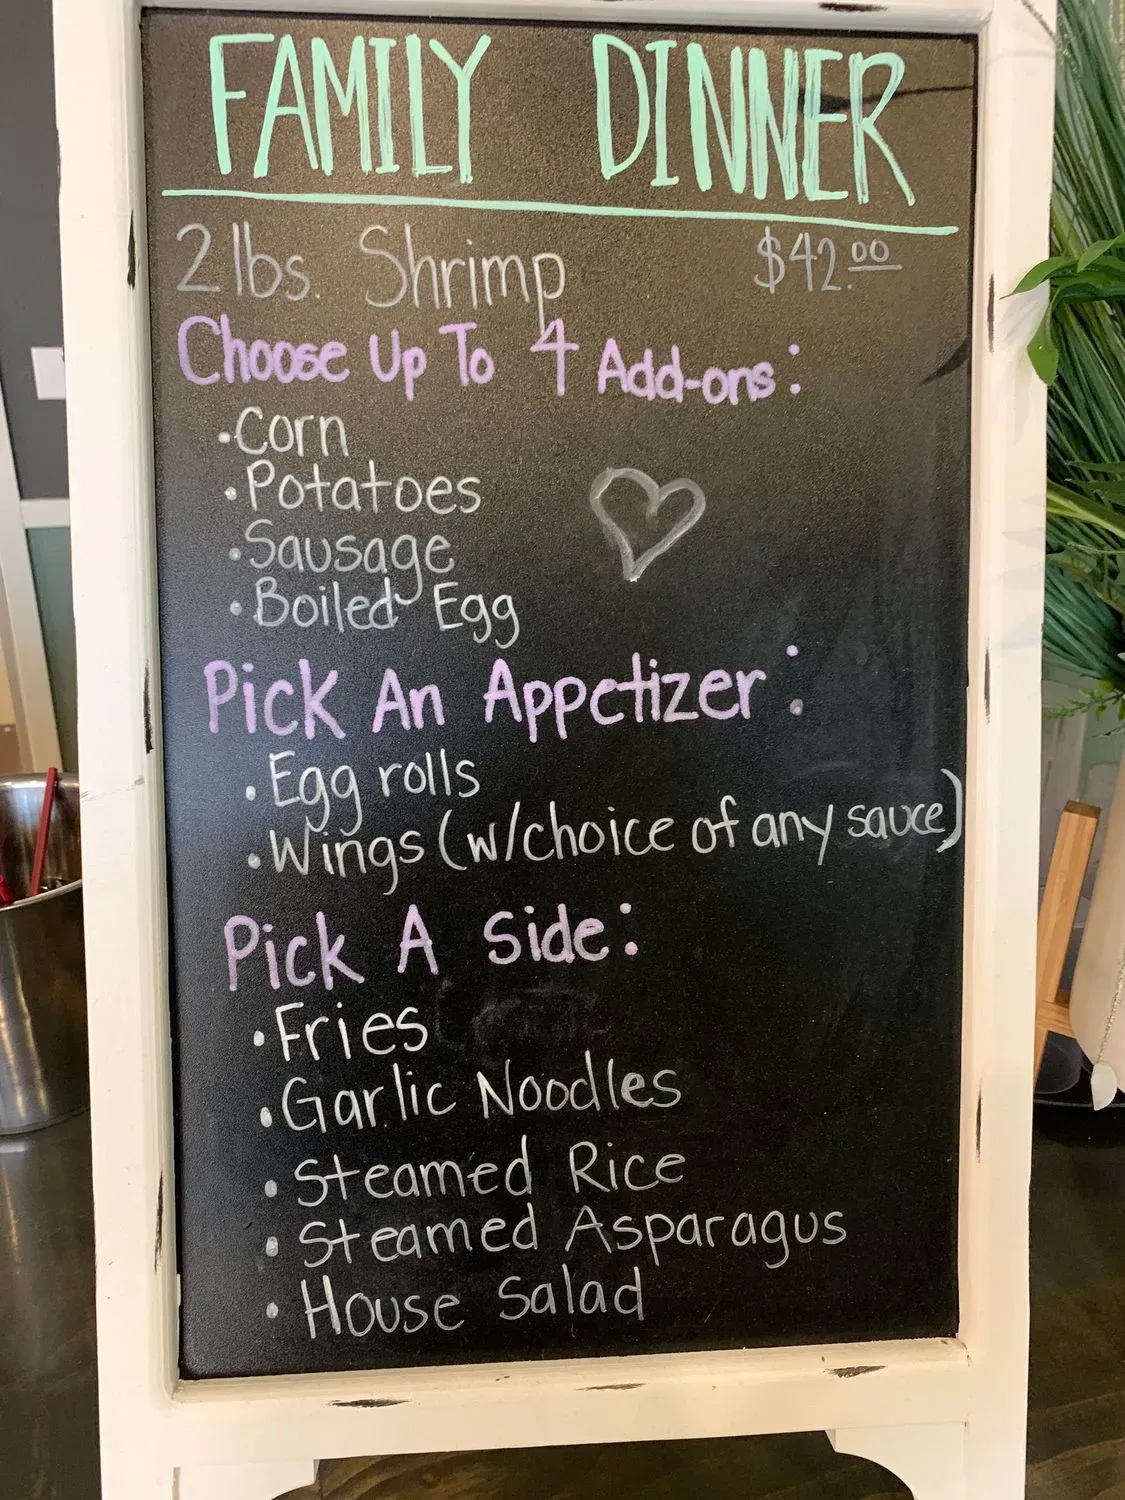 FAMILY DINNER
2 lbs. Shrimp $42.00
Choose Up To 4 Add-ons:
• Corn
• Potatoes
• Sausage
• Boiled Egg
Pick An Appetizer:
• Egg rolls
• Wings (w/choice of any sauce)
Pick A Side:
• Fries
• Garlic Noodles
• Steamed Rice
• Steamed Asparagus
• House Salad